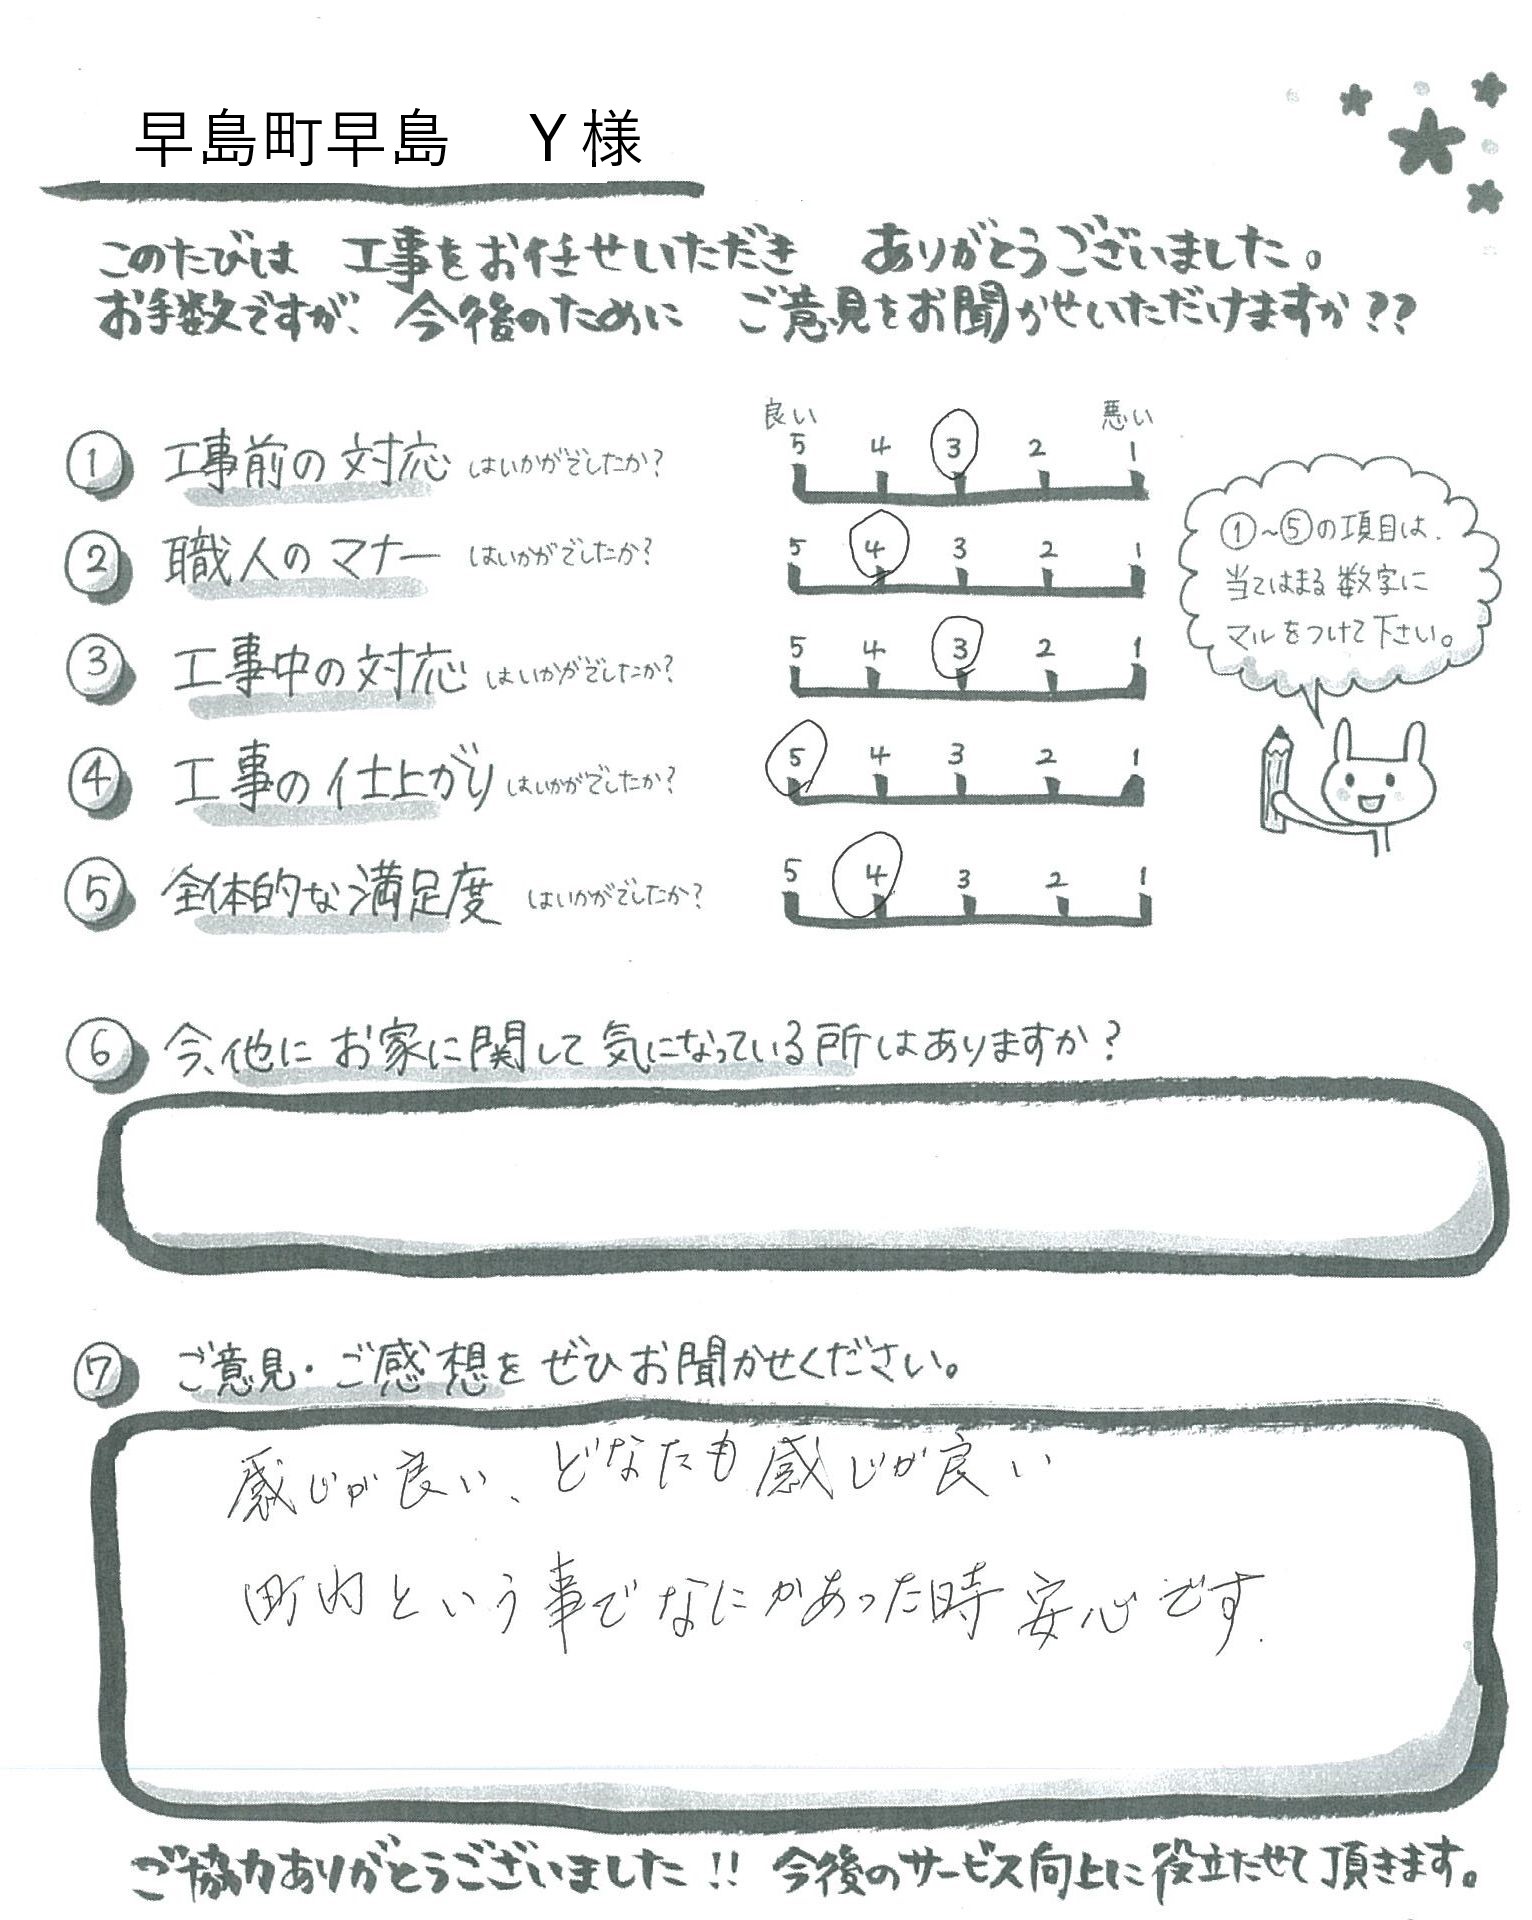 早島町早島　Y様
このたびは 工事をお任せいただき ありがとうございました。
お手数ですが、今後のために ご意見をお聞かせいただけますか??
良い 悪い
① 工事前の対応 はいかがでしたか? 5 4 3 2 1
② 職人のマナー はいかがでしたか? 5 4 3 2 1
③ 工事中の対応 はいかがでしたか? 5 4 3 2 1
④ 工事の仕上がり はいかがでしたか? 5 4 3 2 1
⑤ 全体的な満足度 はいかがでしたか? 5 4 3 2 1
①~⑤の項目は、
当てはまる数字に
マルをつけて下さい。
⑥ 今、他にお家に関して気になっている所はありますか?
⑦ ご意見・ご感想をぜひお聞かせください。
感じが良い、どなたも感じが良い
町内という事でなにかあった時安心です.
ご協力ありがとうございました!! 今後のサービス向上に役立たせて頂きます。